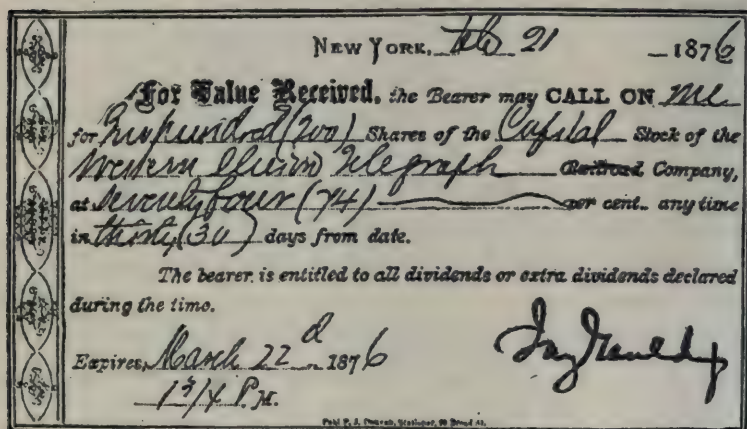 NEW YORK, Feb 21 1876
For Value Received, the Bearer may CALL ON me
for Two hundred (200) Shares of the Capital Stock of the
Western Union Telegraph Railroad Company,
at Seventy four (74) per cent. any time
in thirty (30) days from date.
The bearer is entitled to all dividends or extra dividends declared
during the time.
Expires, March 22d 1876
1 3/4 P.M.
Jay Gould